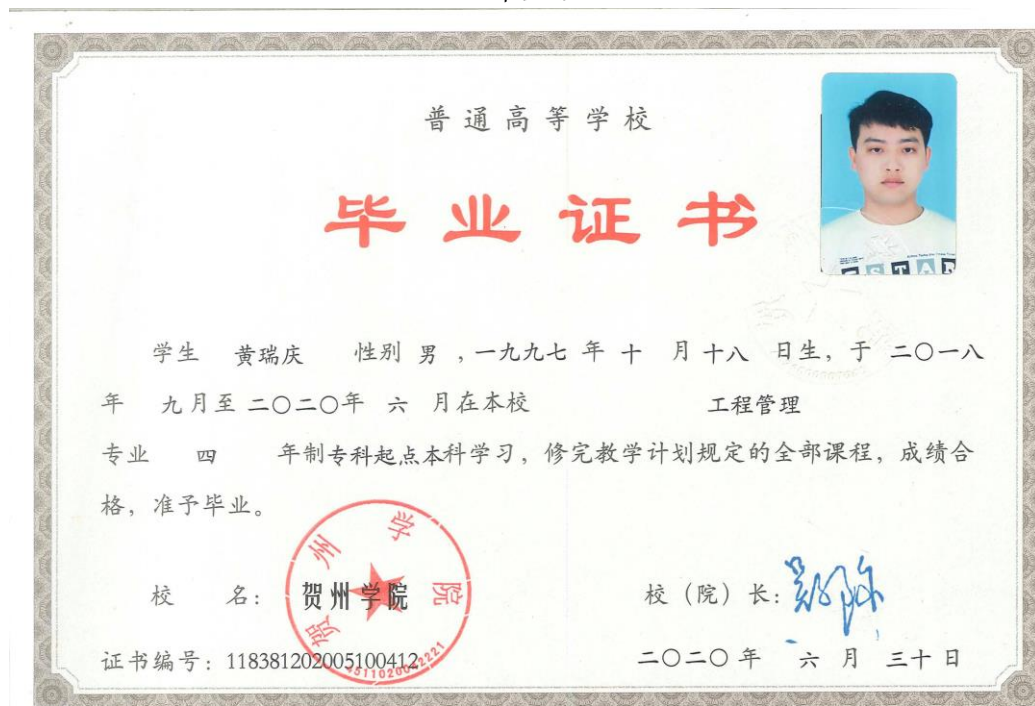 普通高等学校
毕业证书
学生 黄瑞庆 性别 男 ,一九九七 年 十 月 十八 日生, 于 二〇一八
年 九月至 二〇二〇年 六 月在本校 工程管理
专业 四 年制专科起点本科学习, 修完教学计划规定的全部课程, 成绩合
格, 准予毕业。
校 名: 贺州学院 校(院)长:
贺州学院
证书编号: 118381202005100412 二〇二〇年 六 月 三十 日